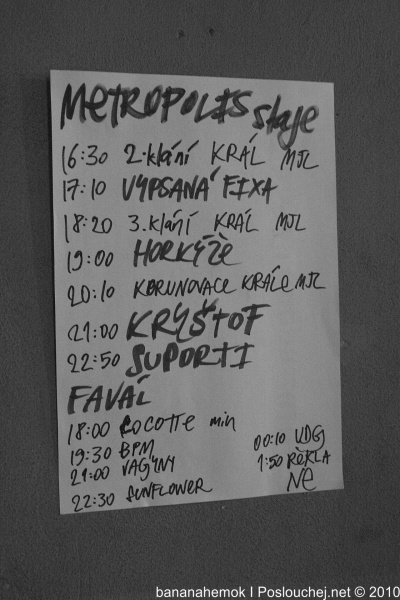 METROPOLIS stage
16:30 2.klání KRÁL MJL
17:10 VYPSANÁ FIXA
18:20 3.klání KRÁL MJL
19:00 HORKÝŽE
20:10 KORUNOVACE KRÁLE MJL
21:00 KRYŠTOF
22:50 SUPORTI
FAVÁL
18:00 COCOTTE min
19:30 BPM
21:00 VAGYNY
22:30 SUNFLOWER
00:10 UDG
1:50 ŘEKLA
NE
bananahemok I Poslouchej.net © 2010